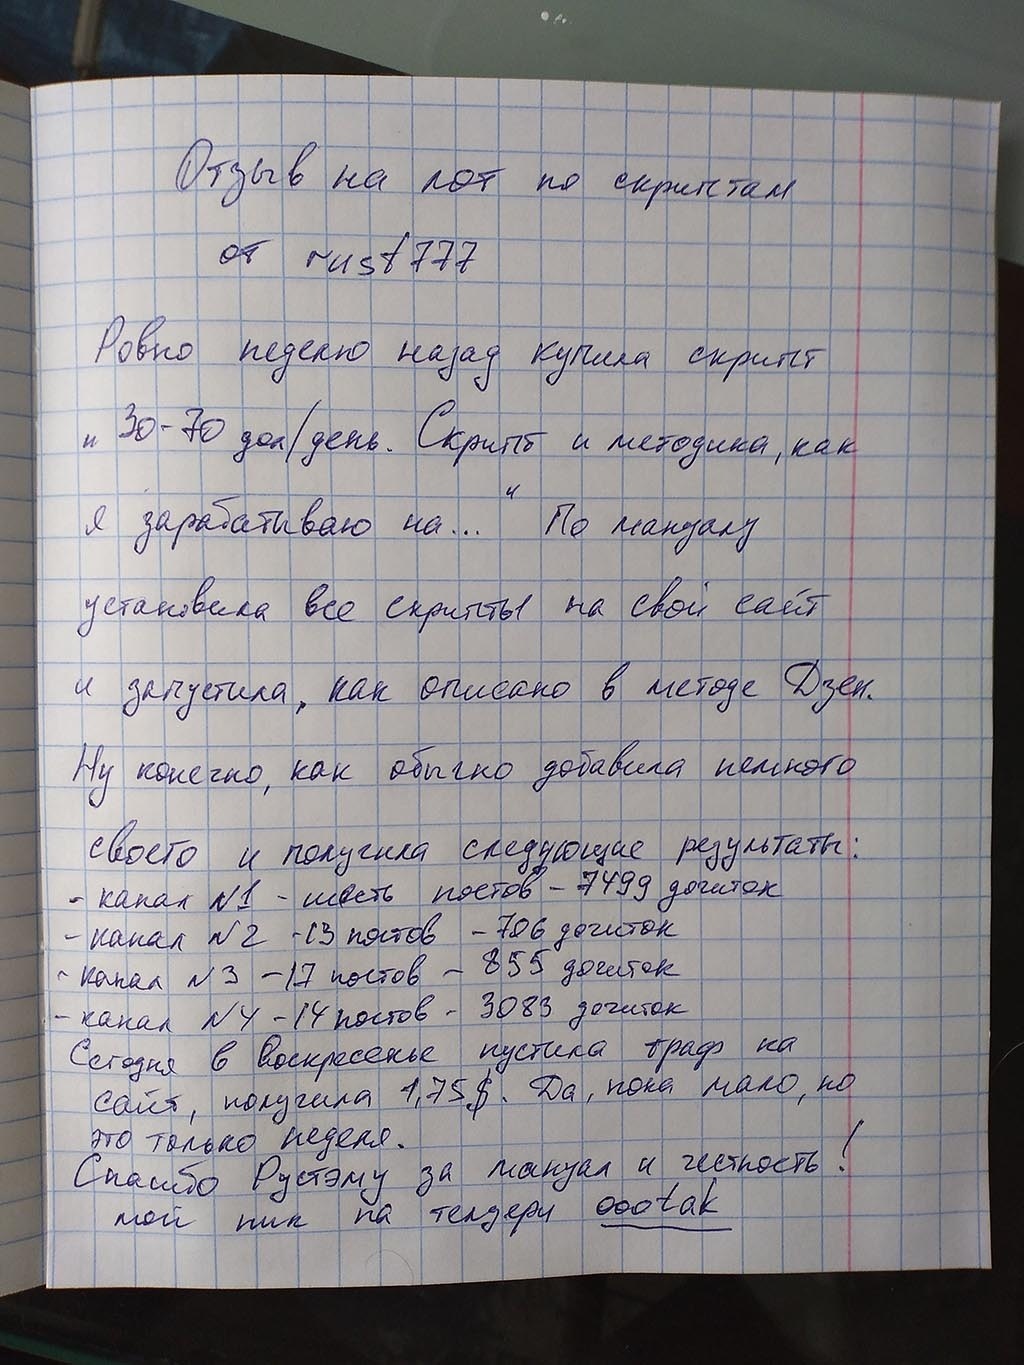 Отзыв на лот по скриптам
от rust777
Ровно неделю назад купила скрипт
"30-70 дол/день. Скрипт и методика, как
я зарабатываю на..." По мануалу
установила все скрипты на свой сайт
и запустила, как описано в методе Дзен.
Ну конечно, как обычно добавила немного
своего и получила следующие результаты:
- канал №1 - шесть постов - 7499 дочиток
- канал №2 - 13 постов - 706 дочиток
- канал №3 - 17 постов - 855 дочиток
- канал №4 - 14 постов - 3083 дочиток
Сегодня в воскресенье пустила траф на
сайт, получила 1,75$. Да, пока мало, но
это только неделя.
Спасибо Рустэму за мануал и честность!
мой ник на телдери oootak